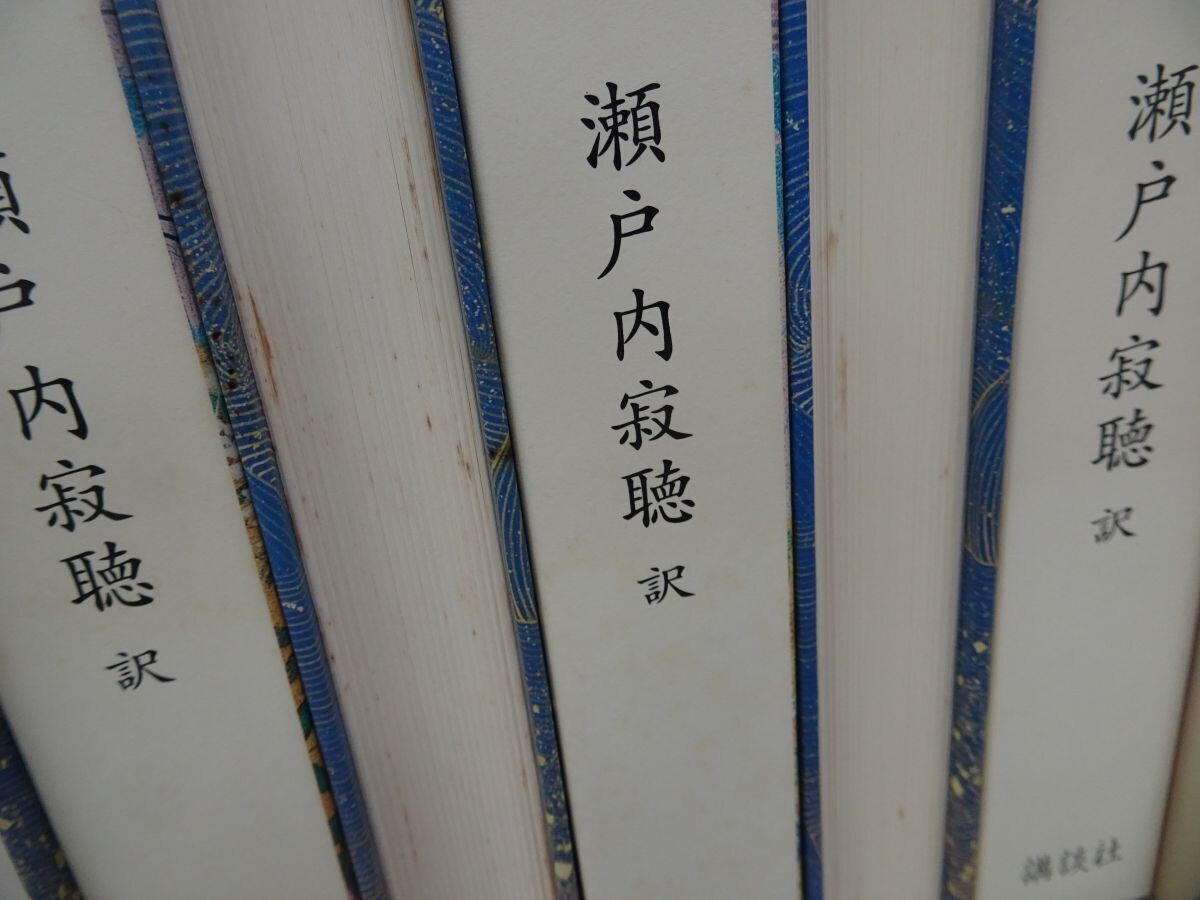 瀬戸内寂聴 訳
瀬戸内寂聴 訳
瀬戸内寂聴 訳
講談社